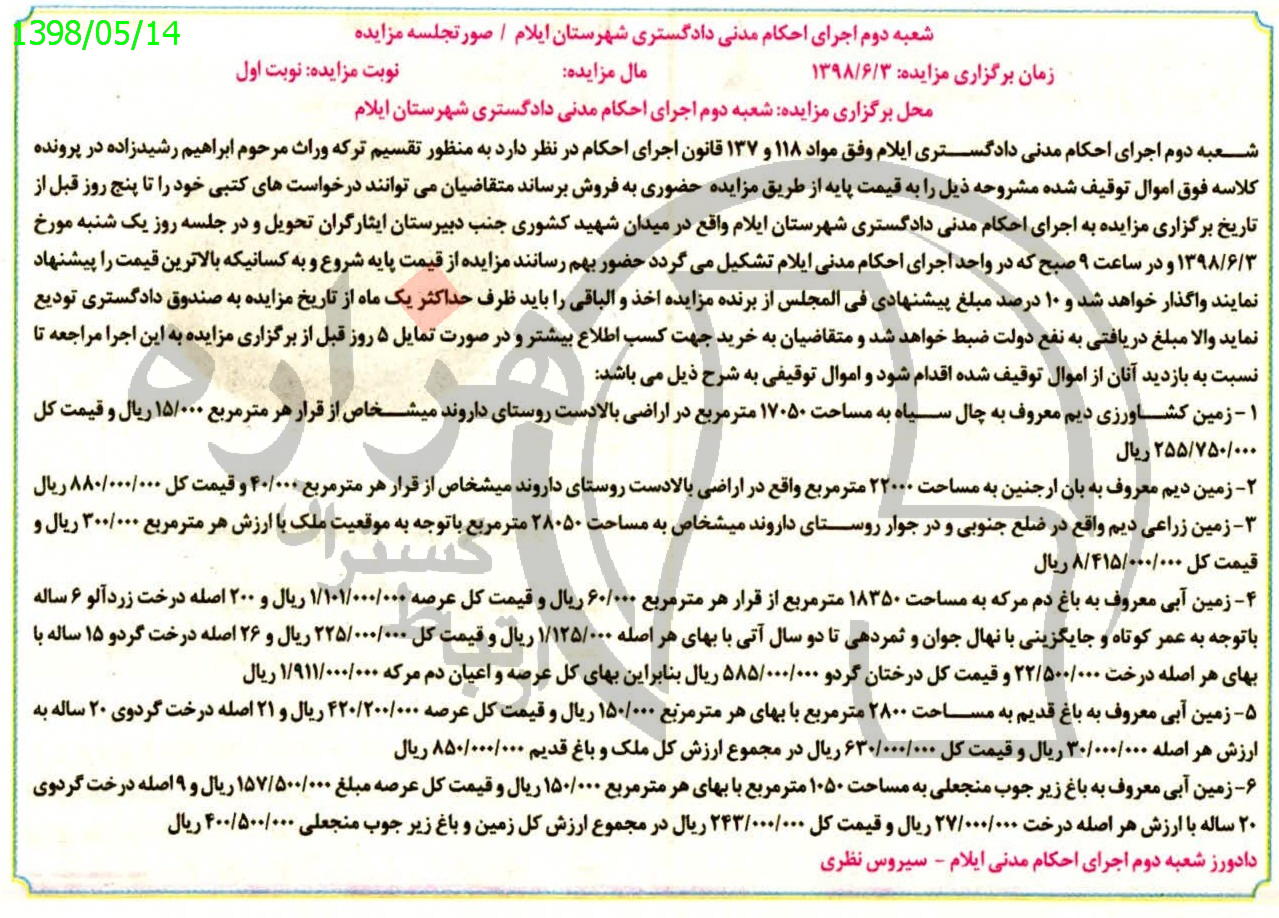 1398/05/14
شعبه دوم اجرای احکام مدنی دادگستری شهرستان ایلام / صورتجلسه مزایده
زمان برگزاری مزایده: ۱۳۹۸/۶/۳ مال مزایده: نوبت مزایده: نوبت اول
محل برگزاری مزایده: شعبه دوم اجرای احکام مدنی دادگستری شهرستان ایلام
شعبه دوم اجرای احکام مدنی دادگستری ایلام وفق مواد ۱۱۸ و ۱۳۷ قانون اجرای احکام در نظر دارد به منظور تقسیم ترکه وراث مرحوم ابراهیم رشیدزاده در پرونده
کلاسه فوق اموال توقیف شده مشروحه ذیل را به قیمت پایه از طریق مزایده حضوری به فروش برساند متقاضیان می توانند درخواست های کتبی خود را تا پنج روز قبل از
تاریخ برگزاری مزایده به اجرای احکام مدنی دادگستری شهرستان ایلام واقع در میدان شهید کشوری جنب دبیرستان ایثارگران تحویل و در جلسه روز یک شنبه مورخ
۱۳۹۸/۶/۳ و در ساعت ۹ صبح که در واحد اجرای احکام مدنی ایلام تشکیل می گردد حضور بهم رسانند مزایده از قیمت پایه شروع و به کسانیکه بالاترین قیمت را پیشنهاد
نمایند واگذار خواهد شد و ۱۰ درصد مبلغ پیشنهادی فی المجلس از برنده مزایده اخذ و الباقی را باید ظرف حداکثر یک ماه از تاریخ مزایده به صندوق دادگستری تودیع
نماید والا مبلغ دریافتی به نفع دولت ضبط خواهد شد و متقاضیان به خرید جهت کسب اطلاع بیشتر و در صورت تمایل ۵ روز قبل از برگزاری مزایده به این اجرا مراجعه تا
نسبت به بازدید آنان از اموال توقیف شده اقدام شود و اموال توقیفی به شرح ذیل می باشد:
۱- زمین کشاورزی دیم معروف به چال سیاه به مساحت ۱۷۰۵۰ مترمربع در اراضی بالادست روستای داروند میشخاص از قرار هر مترمربع ۱۵/۰۰۰ ریال و قیمت کل
۲۵۵/۷۵۰/۰۰۰ ریال
۲- زمین دیم معروف به بان ارجنین به مساحت ۲۲۰۰۰ مترمربع واقع در اراضی بالادست روستای داروند میشخاص از قرار هر مترمربع ۴۰/۰۰۰ و قیمت کل ۸۸۰/۰۰۰/۰۰۰ ریال
۳- زمین زراعی دیم واقع در ضلع جنوبی و در جوار روستای داروند میشخاص به مساحت ۲۸۰۵۰ مترمربع باتوجه به موقعیت ملک با ارزش هر مترمربع ۳۰۰/۰۰۰ ریال و
قیمت کل ۸/۴۱۵/۰۰۰/۰۰۰ ریال
۴- زمین آبی معروف به باغ دم مرکه به مساحت ۱۸۳۵۰ مترمربع از قرار هر مترمربع ۶۰/۰۰۰ ریال و قیمت کل عرصه ۱/۱۰۱/۰۰۰/۰۰۰ ریال و ۲۰۰ اصله درخت زردآلو ۶ ساله
باتوجه به عمر کوتاه و جایگزینی با نهال جوان و ثمردهی تا دو سال آتی با بهای هر اصله ۱/۱۲۵/۰۰۰ ریال و قیمت کل ۲۲۵/۰۰۰/۰۰۰ ریال و ۲۶ اصله درخت گردو ۱۵ ساله با
بهای هر اصله درخت ۲۲/۵۰۰/۰۰۰ و قیمت کل درختان گردو ۵۸۵/۰۰۰/۰۰۰ ریال بنابراین بهای کل عرصه و اعیان دم مرکه ۱/۹۱۱/۰۰۰/۰۰۰ ریال
۵- زمین آبی معروف به باغ قدیم به مساحت ۲۸۰۰ مترمربع با بهای هر مترمربع ۱۵۰/۰۰۰ ریال و قیمت کل عرصه ۴۲۰/۲۰۰/۰۰۰ ریال و ۲۱ اصله درخت گردوی ۲۰ ساله به
ارزش هر اصله ۳۰/۰۰۰/۰۰۰ ریال و قیمت کل ۶۳۰/۰۰۰/۰۰۰ ریال در مجموع ارزش کل ملک و باغ قدیم ۸۵۰/۰۰۰/۰۰۰ ریال
۶- زمین آبی معروف به باغ زیر جوب منجعلی به مساحت ۱۰۵۰ مترمربع با بهای هر مترمربع ۱۵۰/۰۰۰ ریال و قیمت کل عرصه مبلغ ۱۵۷/۵۰۰/۰۰۰ ریال و ۹ اصله درخت گردوی
۲۰ ساله با ارزش هر اصله درخت ۲۷/۰۰۰/۰۰۰ ریال و قیمت کل ۲۴۳/۰۰۰/۰۰۰ ریال در مجموع ارزش کل زمین و باغ زیر جوب منجعلی ۴۰۰/۵۰۰/۰۰۰ ریال
دادورز شعبه دوم اجرای احکام مدنی ایلام - سیروس نظری
هزاره
گستران
ارتباط